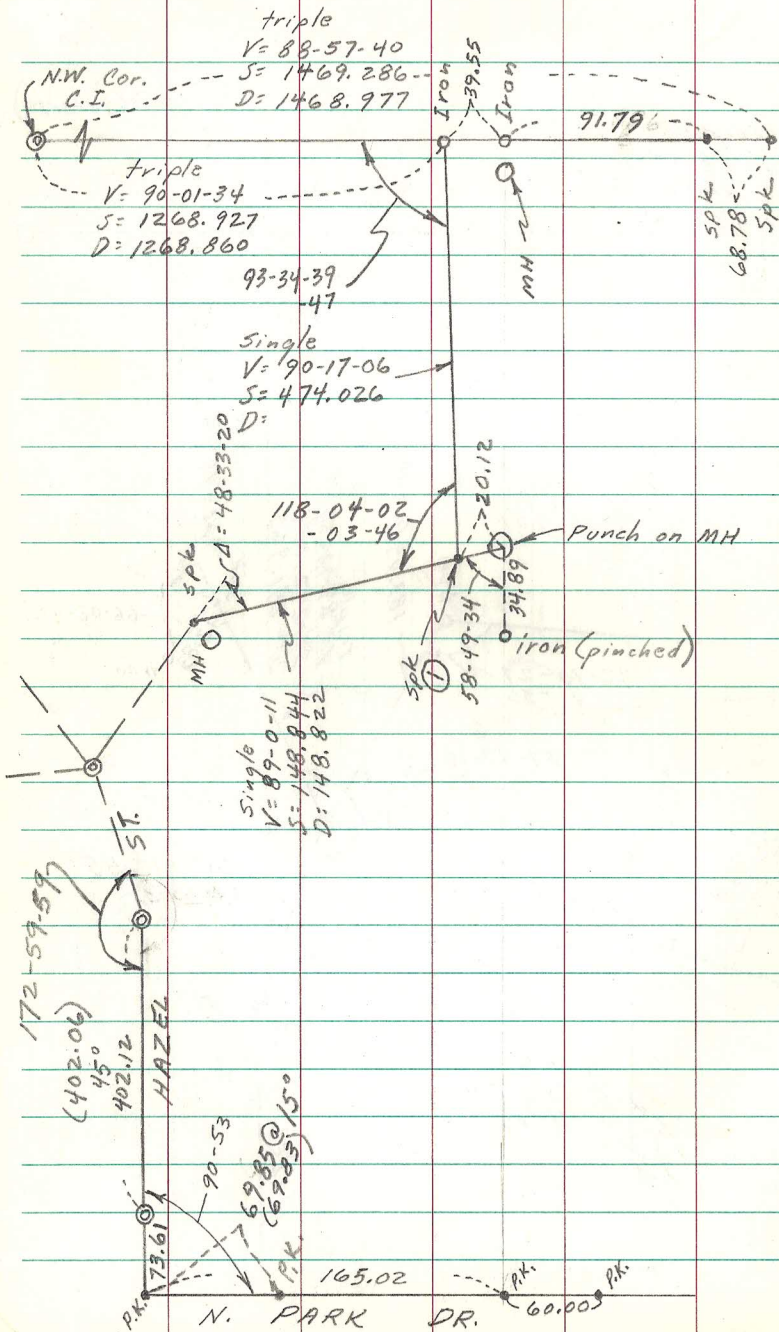 triple
V= 88-57-40
S= 1469.286
D= 1468.977
N.W. Cor.
C.I.
Iron
39.55
Iron
91.79
triple
V= 90-01-34
S= 1268.927
D= 1268.860
MH
spk
68.78
Spk
93-34-39
-47
Single
V= 90-17-06
S= 474.026
D:
Δ = 48-33-20
spk
118-04-02
-03-46
20.12
Punch on MH
34.89
58-49-34
iron (pinched)
Spk
1
MH
Single
V= 89-0-11
S= 148.844
D= 148.822
ST.
172-59-59
(402.06)
45°
402.12
HAZEL
90-53
69.85 @ 15°
(69.83)
73.61
P.K.
P.K.
165.02
P.K.
P.K.
60.00
N. PARK DR.